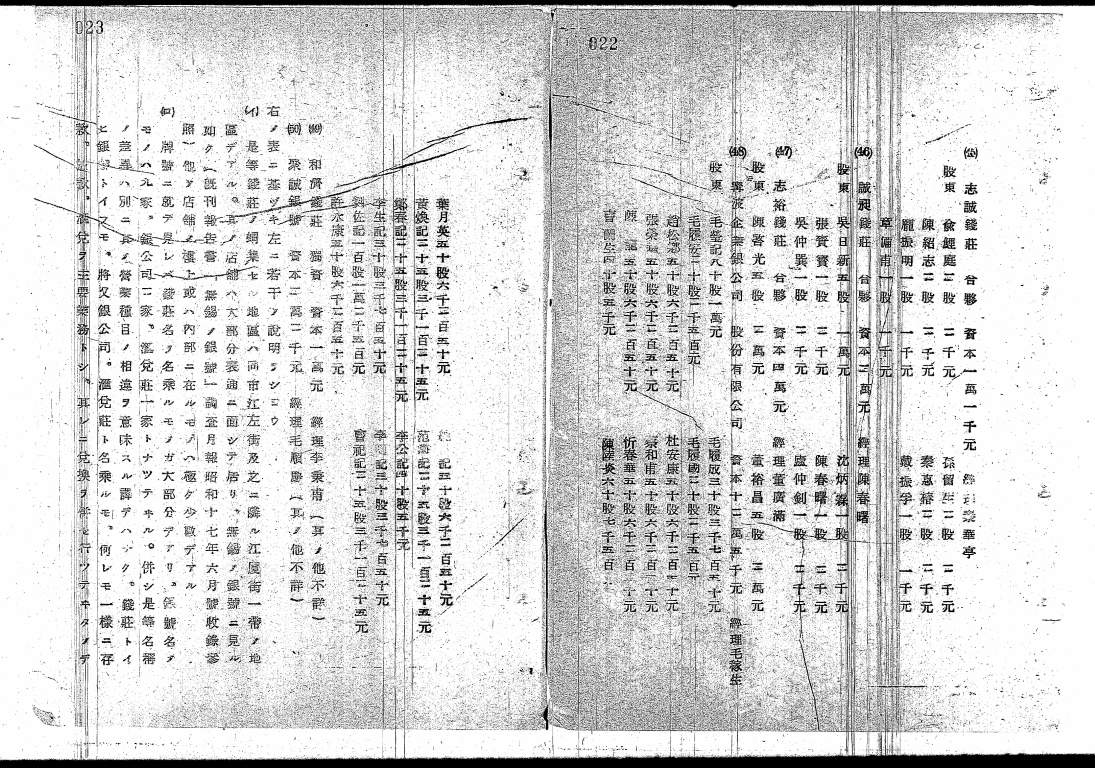 022
(45) 志誠錢莊 合夥 資本一萬一千元 經理 榮華亭
股東 俞經庭二股 二千元 孫留生二股 二千元
陳紹志二股 二千元 秦惠裕二股 二千元
龐振明一股 一千元 戴振孚一股 一千元
草備甫一股 一千元
(46) 誠昶錢莊 合夥 資本二萬元 經理陳春曙
股東 吳日新五股 一萬元 沈炳霖一股 二千元
張賓賓一股 二千元 陳春曙一股 二千元
吳仲巽一股 二千元 盛仲釗一股 二千元
(47) 志裕錢莊 合夥 資本四萬元 經理董廣浦
股東 陳啓光五股 二萬元 董裕昌五股 二萬元
(48) 寧波企業銀公司 股份有限公司 資本十二萬五千元 經理毛稼生
股東 毛鎣記八十股一萬元 毛履成三十股三千七百五十元
毛履 二十股二千五百元 毛履國二十股二千五百元
趙松 五十股六千二百五十元 杜安康五十股六千二百五十元
張榮 五十股六千二百五十元 蔡和甫五十股六千二百五十元
陳 五十股六千二百五十元 忻春華五十股六千二百五十元
生四十股五千元 陳 炎六十股七千五百
023
葉月英五十股六千二百五十元 記五十股六千二百五十元
黃煥記二十五股三千一百二十五元 范 記二十五股三千一百二十五元
鄭春記二十五股三千一百二十五元 李公記四十股五千元
李生記三十股三千七百五十元 李 記三十股三千七百五十元
劉佐記一百股一萬二千五百元 曾祀記二十五股三千一百二十五元
許永康五十股六千二百五十元
(49) 和濟錢莊 獨資 資本一萬元 經理李秉甫(其ノ他不詳)
(50) 聚誠銀號 資本二萬二千元 經理毛順慶(其ノ他不詳)
右ノ表ニ基ヅキ左ニ若干ノ說明ヲシヨウ
(イ) 是等錢莊ノ網業セル地區ハ南市江左街及之ニ隣ル江厦街一帶ノ地
區デアル。其ノ店舖ハ大部分表通ニ面シテ居リ。無錫ノ銀號ニ見ル
如ク(既刊報告書「無錫ノ銀號」調査月報昭和十七年六月號收錄參
照)他ノ店舖ノ樓上或ハ內部ニ在ルモノハ極ク少數デアル
(ロ) 牌號ニ就テ見レバ錢莊名ヲ名乘ルモノガ大部分デアリ。銀號名ノ
モノハ九家。銀公司二家。滙兌莊一家トナツテヰル。併シ是等名稱
ノ差異ハ別ニ其ノ營業種目ノ相違ヲ意味スル譯デハナク。錢莊トイ
ヒ銀號トイヌモ。將又銀公司。滙兌莊ト名乘ルモ。何レモ一樣ニ存
款。放款。滙兌ヲ主要業務トシ。其レニ兌換ヲ併セ行ツテヰタノデ